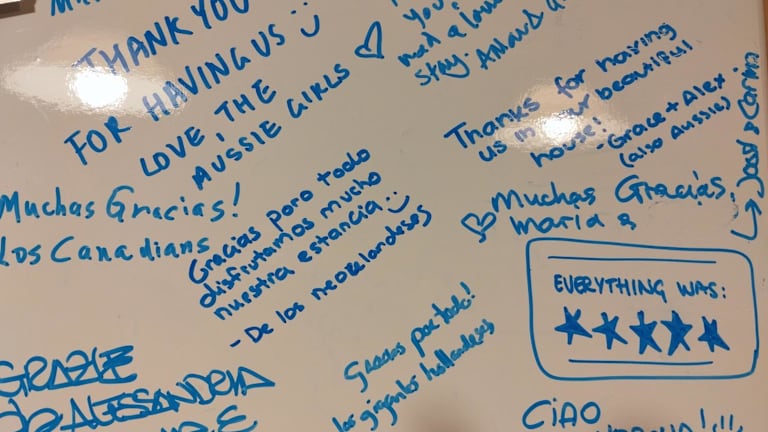 THANK YOU
FOR HAVING US
LOVE, THE
AUSSIE GIRLS
You
stay.
Thanks for having
us in your beautiful
house!
-Grace + Alex
(also Aussie)
Muchas Gracias!
Los Canadians
Gracias paro todo
disfrutamos mucho
nuestra estancia
- De los neozelandeses
Muchas Gracias,
Maria &
EVERYTHING WAS:
Gracias por todo!
los gigantes hollandeses
GRAZIE
ALESSANDRIA
CiAO